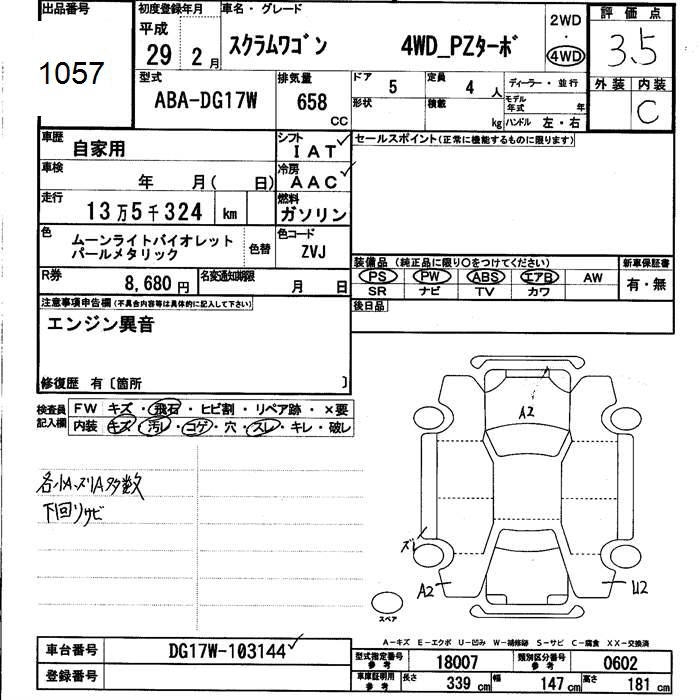 出品番号
1057
初度登録年月
平成
29 2 月
車名・グレード
スクラムワゴン 4WD_PZターボ
2WD
・
4WD
評価点
3.5
外装 内装
C
型式
ABA-DG17W
排気量
658
CC
ドア
5
定員
4 人
形状
積載
kg
ディーラー・並行
モデル年式 年
ハンドル 左・右
車歴
自家用
シフト
IAT
車検
年 月( 日)
冷房
AAC
走行
13万5千324 km
燃料
ガソリン
色
ムーンライトバイオレット
パールメタリック
色替
色コード
ZVJ
R券
8,680 円
名変通知期限
月 日
セールスポイント(正常に機能するものに限ります)
装備品 (純正品に限り○をつけてください)
PS PW ABS エアB AW
SR ナビ TV カワ
新車保証書
有・無
後日品
注意事項申告欄(不具合内容等は具体的に記入して下さい)
エンジン異音
修復歴 有〔箇所 〕
検査員
記入欄
FW キズ・飛石・ヒビ割・リペア跡・×要
内装 キズ・汚レ・コゲ・穴・スレ・キレ・破レ
各小A.ズリA多数
下回りサビ
A2
ズレ
A2
U2
スペア
A-キズ E-エクボ U-凹み W-補修跡 S-サビ C-腐食 XX-交換済
車台番号
DG17W-103144
登録番号
型式指定番号
参考
18007
類別区分番号
参考
0602
車庫証明用
参考
長さ 339 cm 幅 147 cm 高さ 181 cm